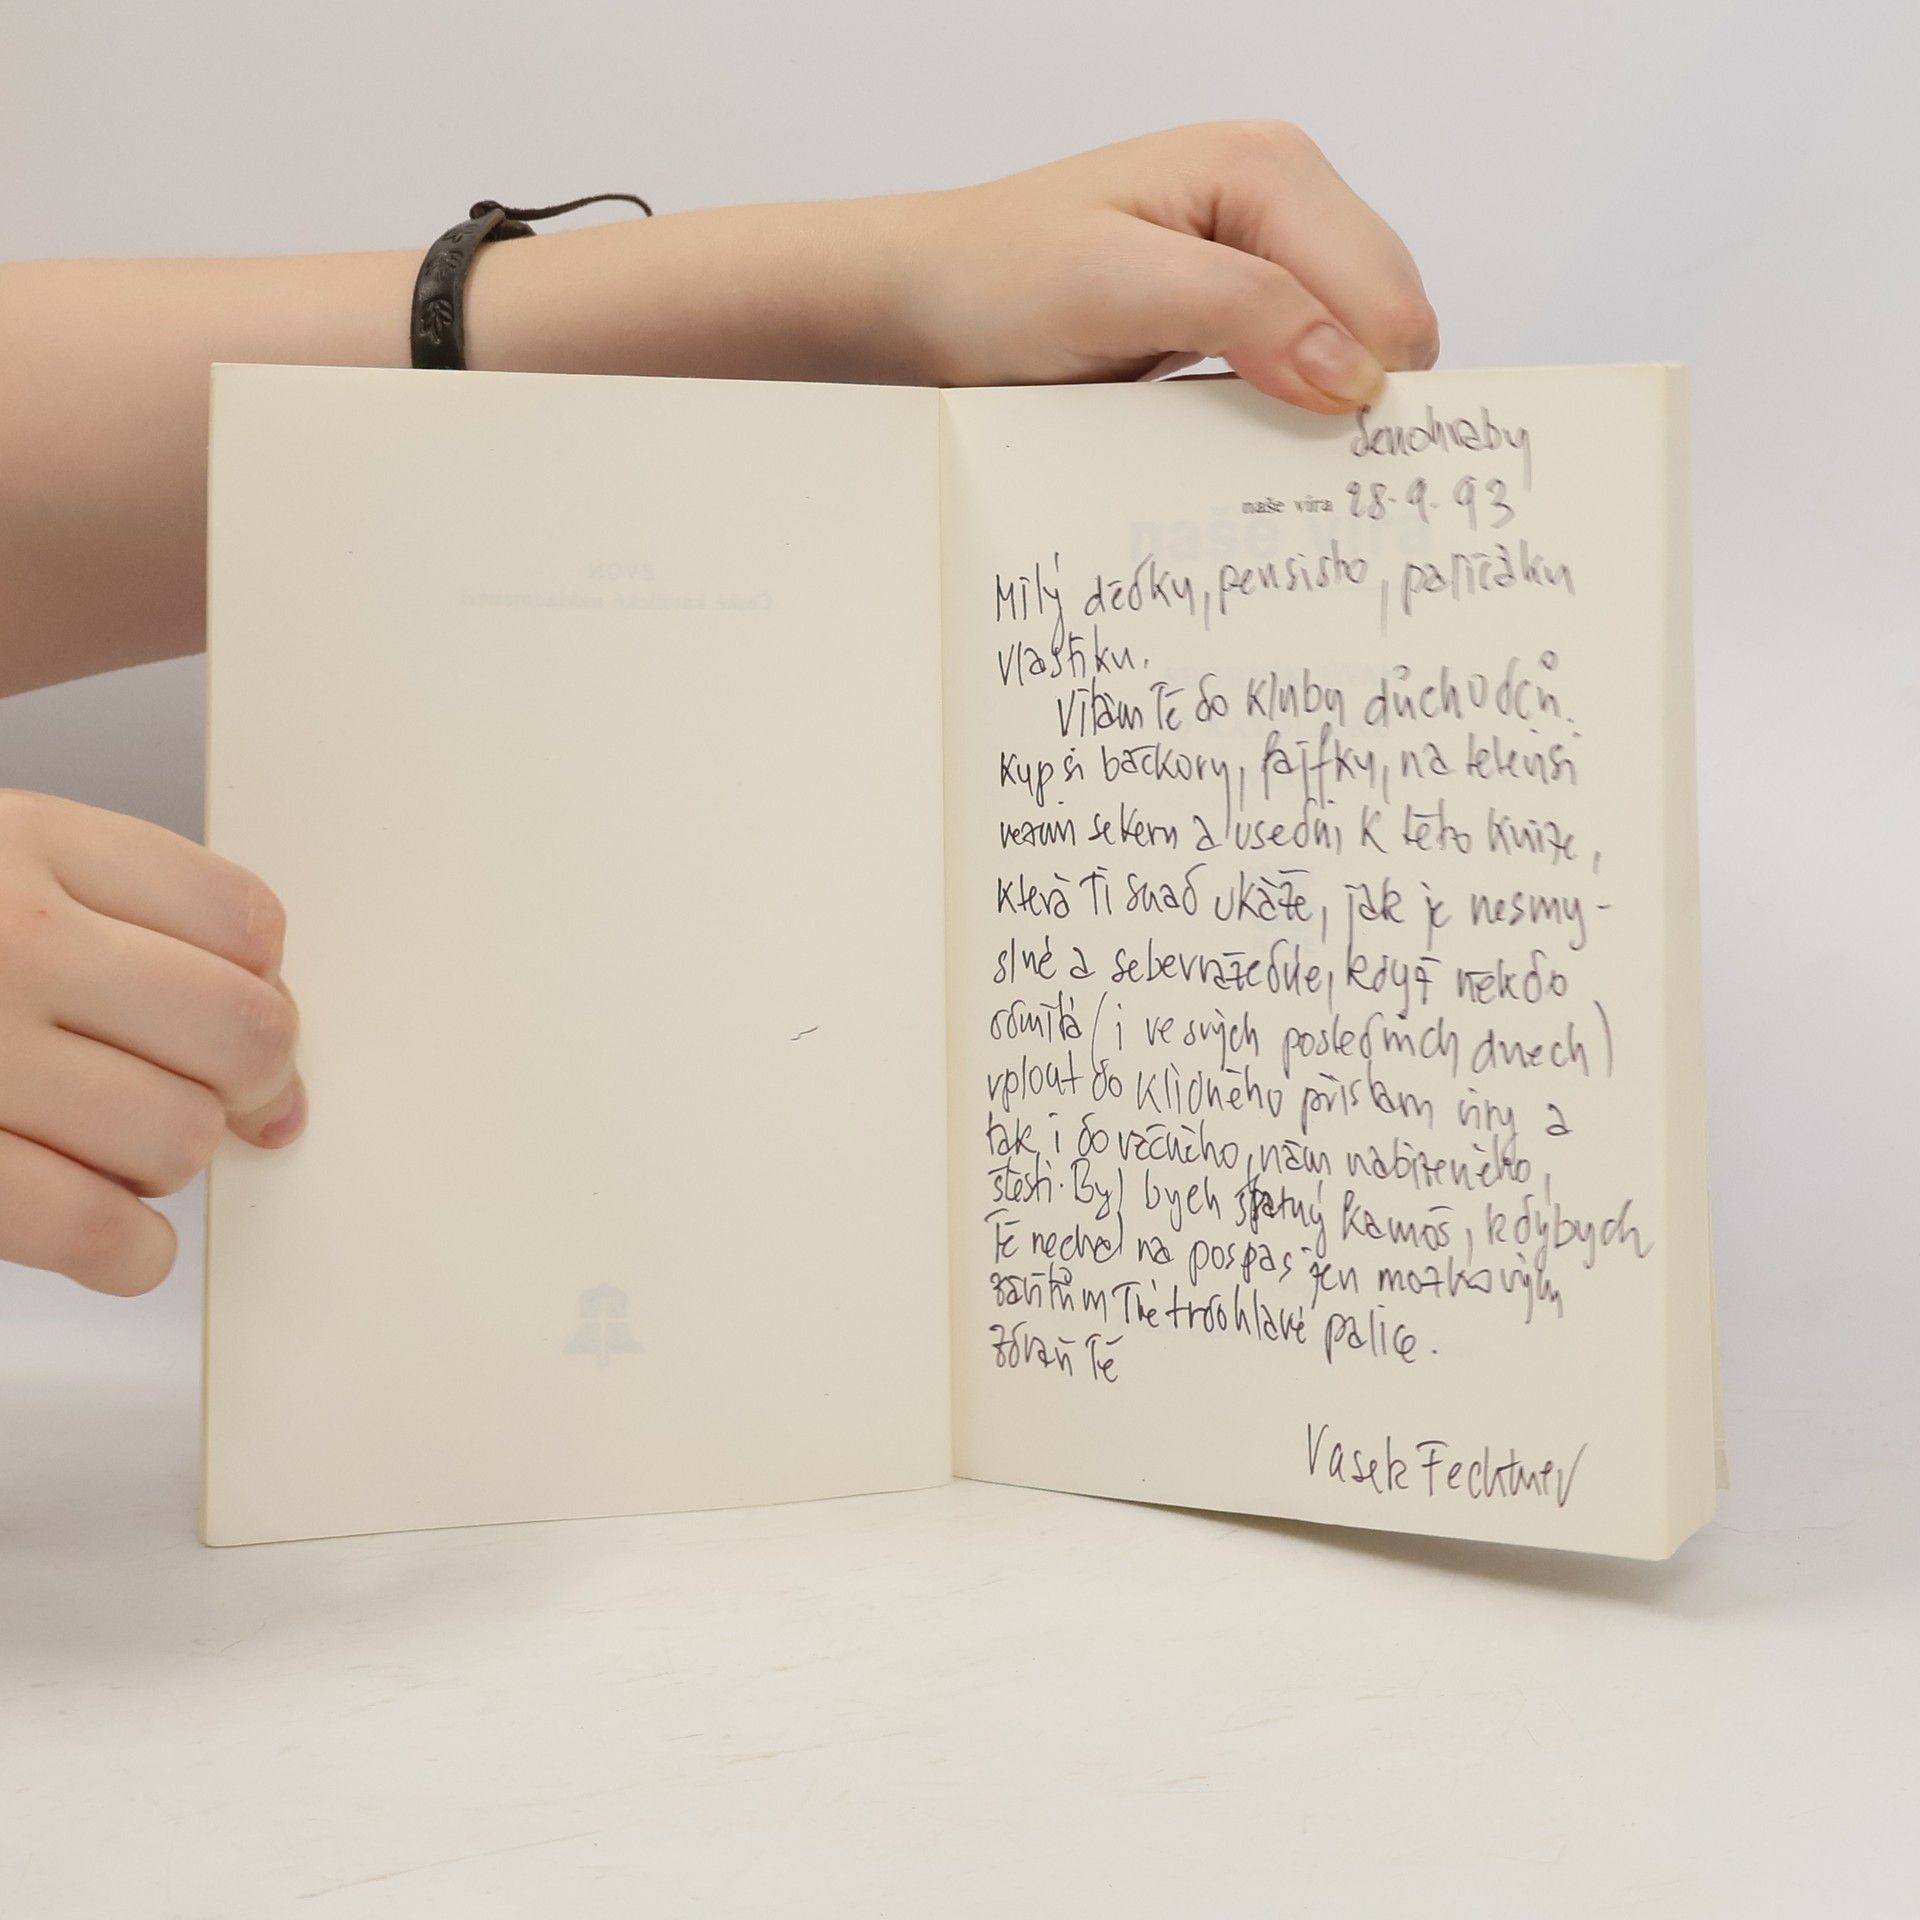 Senohraby
naše víra 28.9.93
Milý dědku, pensisto, paličáku
Vlastíku.
Vítám Tě do kluby důchodců.
Kup si bačkory, fajfky, na televisi
vezmi sekeru a usedni k této knize,
která Ti snad ukáže, jak je nesmy-
slné a sebevražedné, když někdo
odmítá (i ve svých posledních dnech)
vplout do klidného přístavu víry a
tak i do věčného, nám nabízeného,
štěstí. Byl bych špatný kamoš, kdybych
Tě nechal na pospas jen mozkovým
závitům Tvé tvrdohlavé palice.
Zdraví Tě
Vašek Fechtner
ZVON
České katolické nakladatelství
naše víra